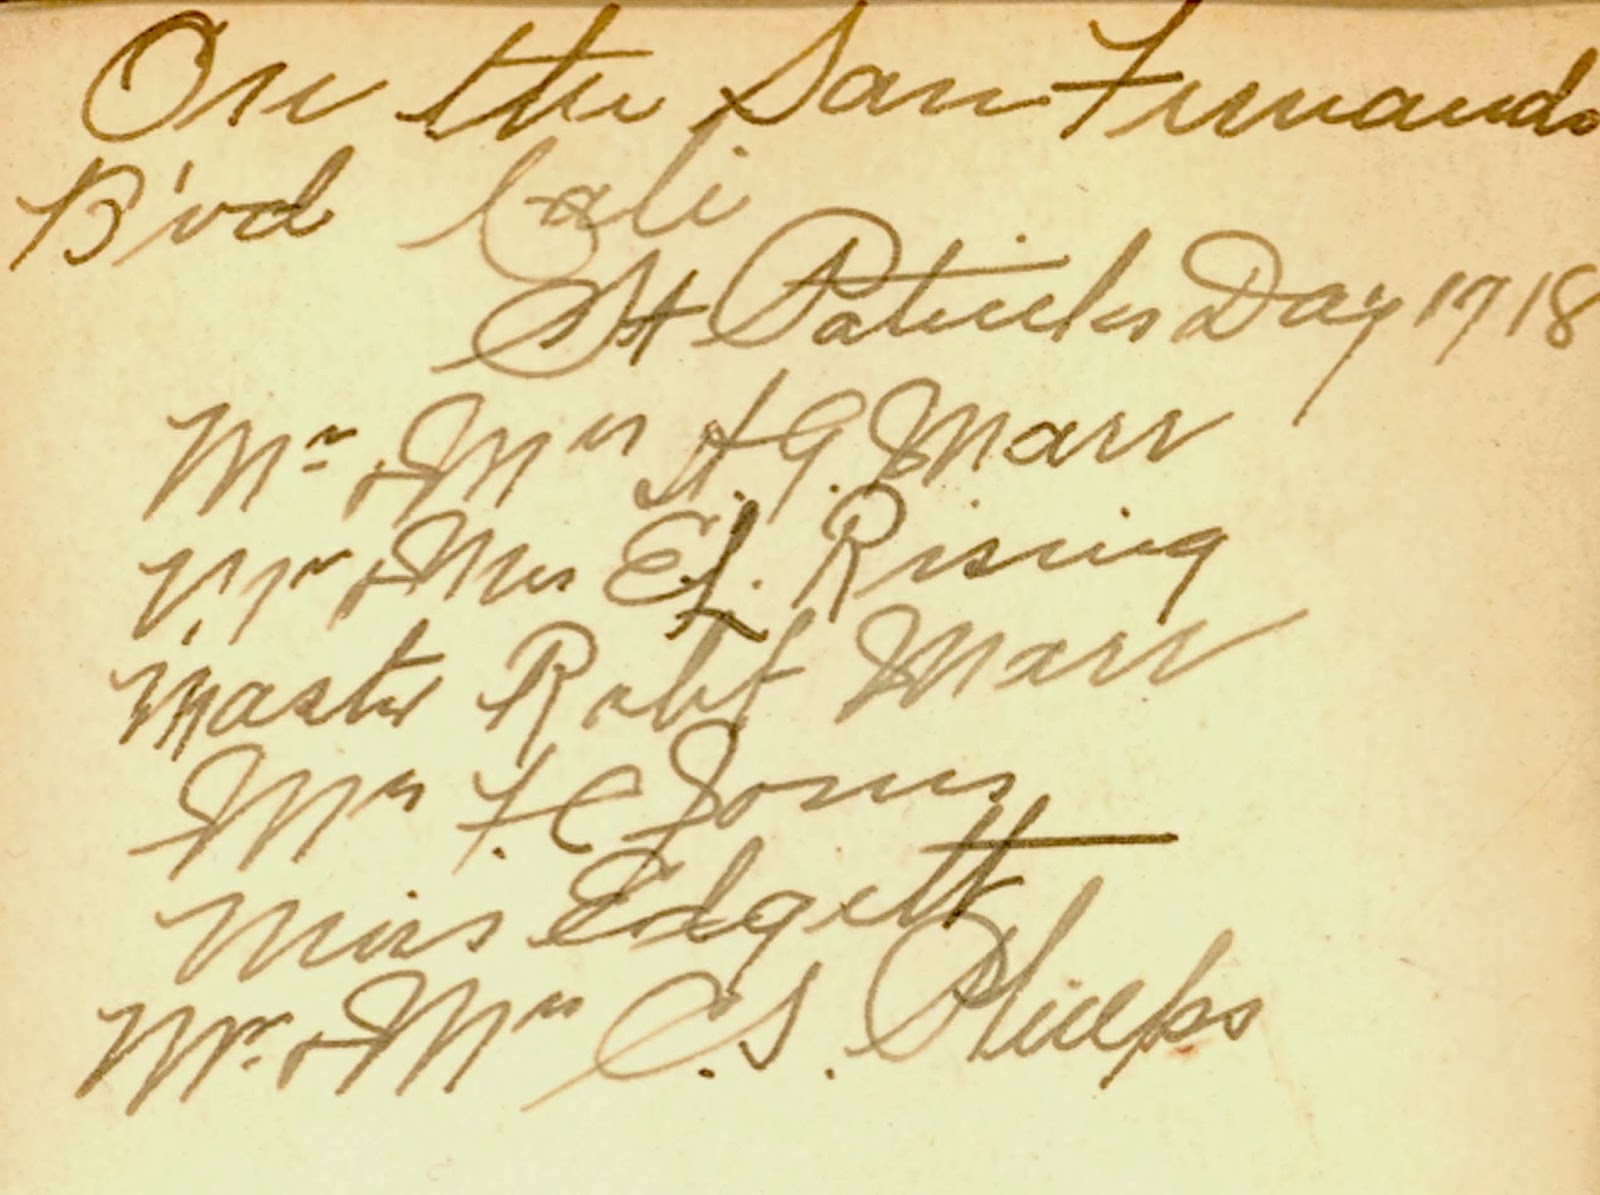 On the San Fernando
B'vd Cali
St Patricks Day 1718
Mr & Mrs A. G. Marr
Mr & Mrs E L. Rising
Master Robt Marr
Mrs F. C Jones
Miss Edgett
Mr. & Mrs C. S. Phelps